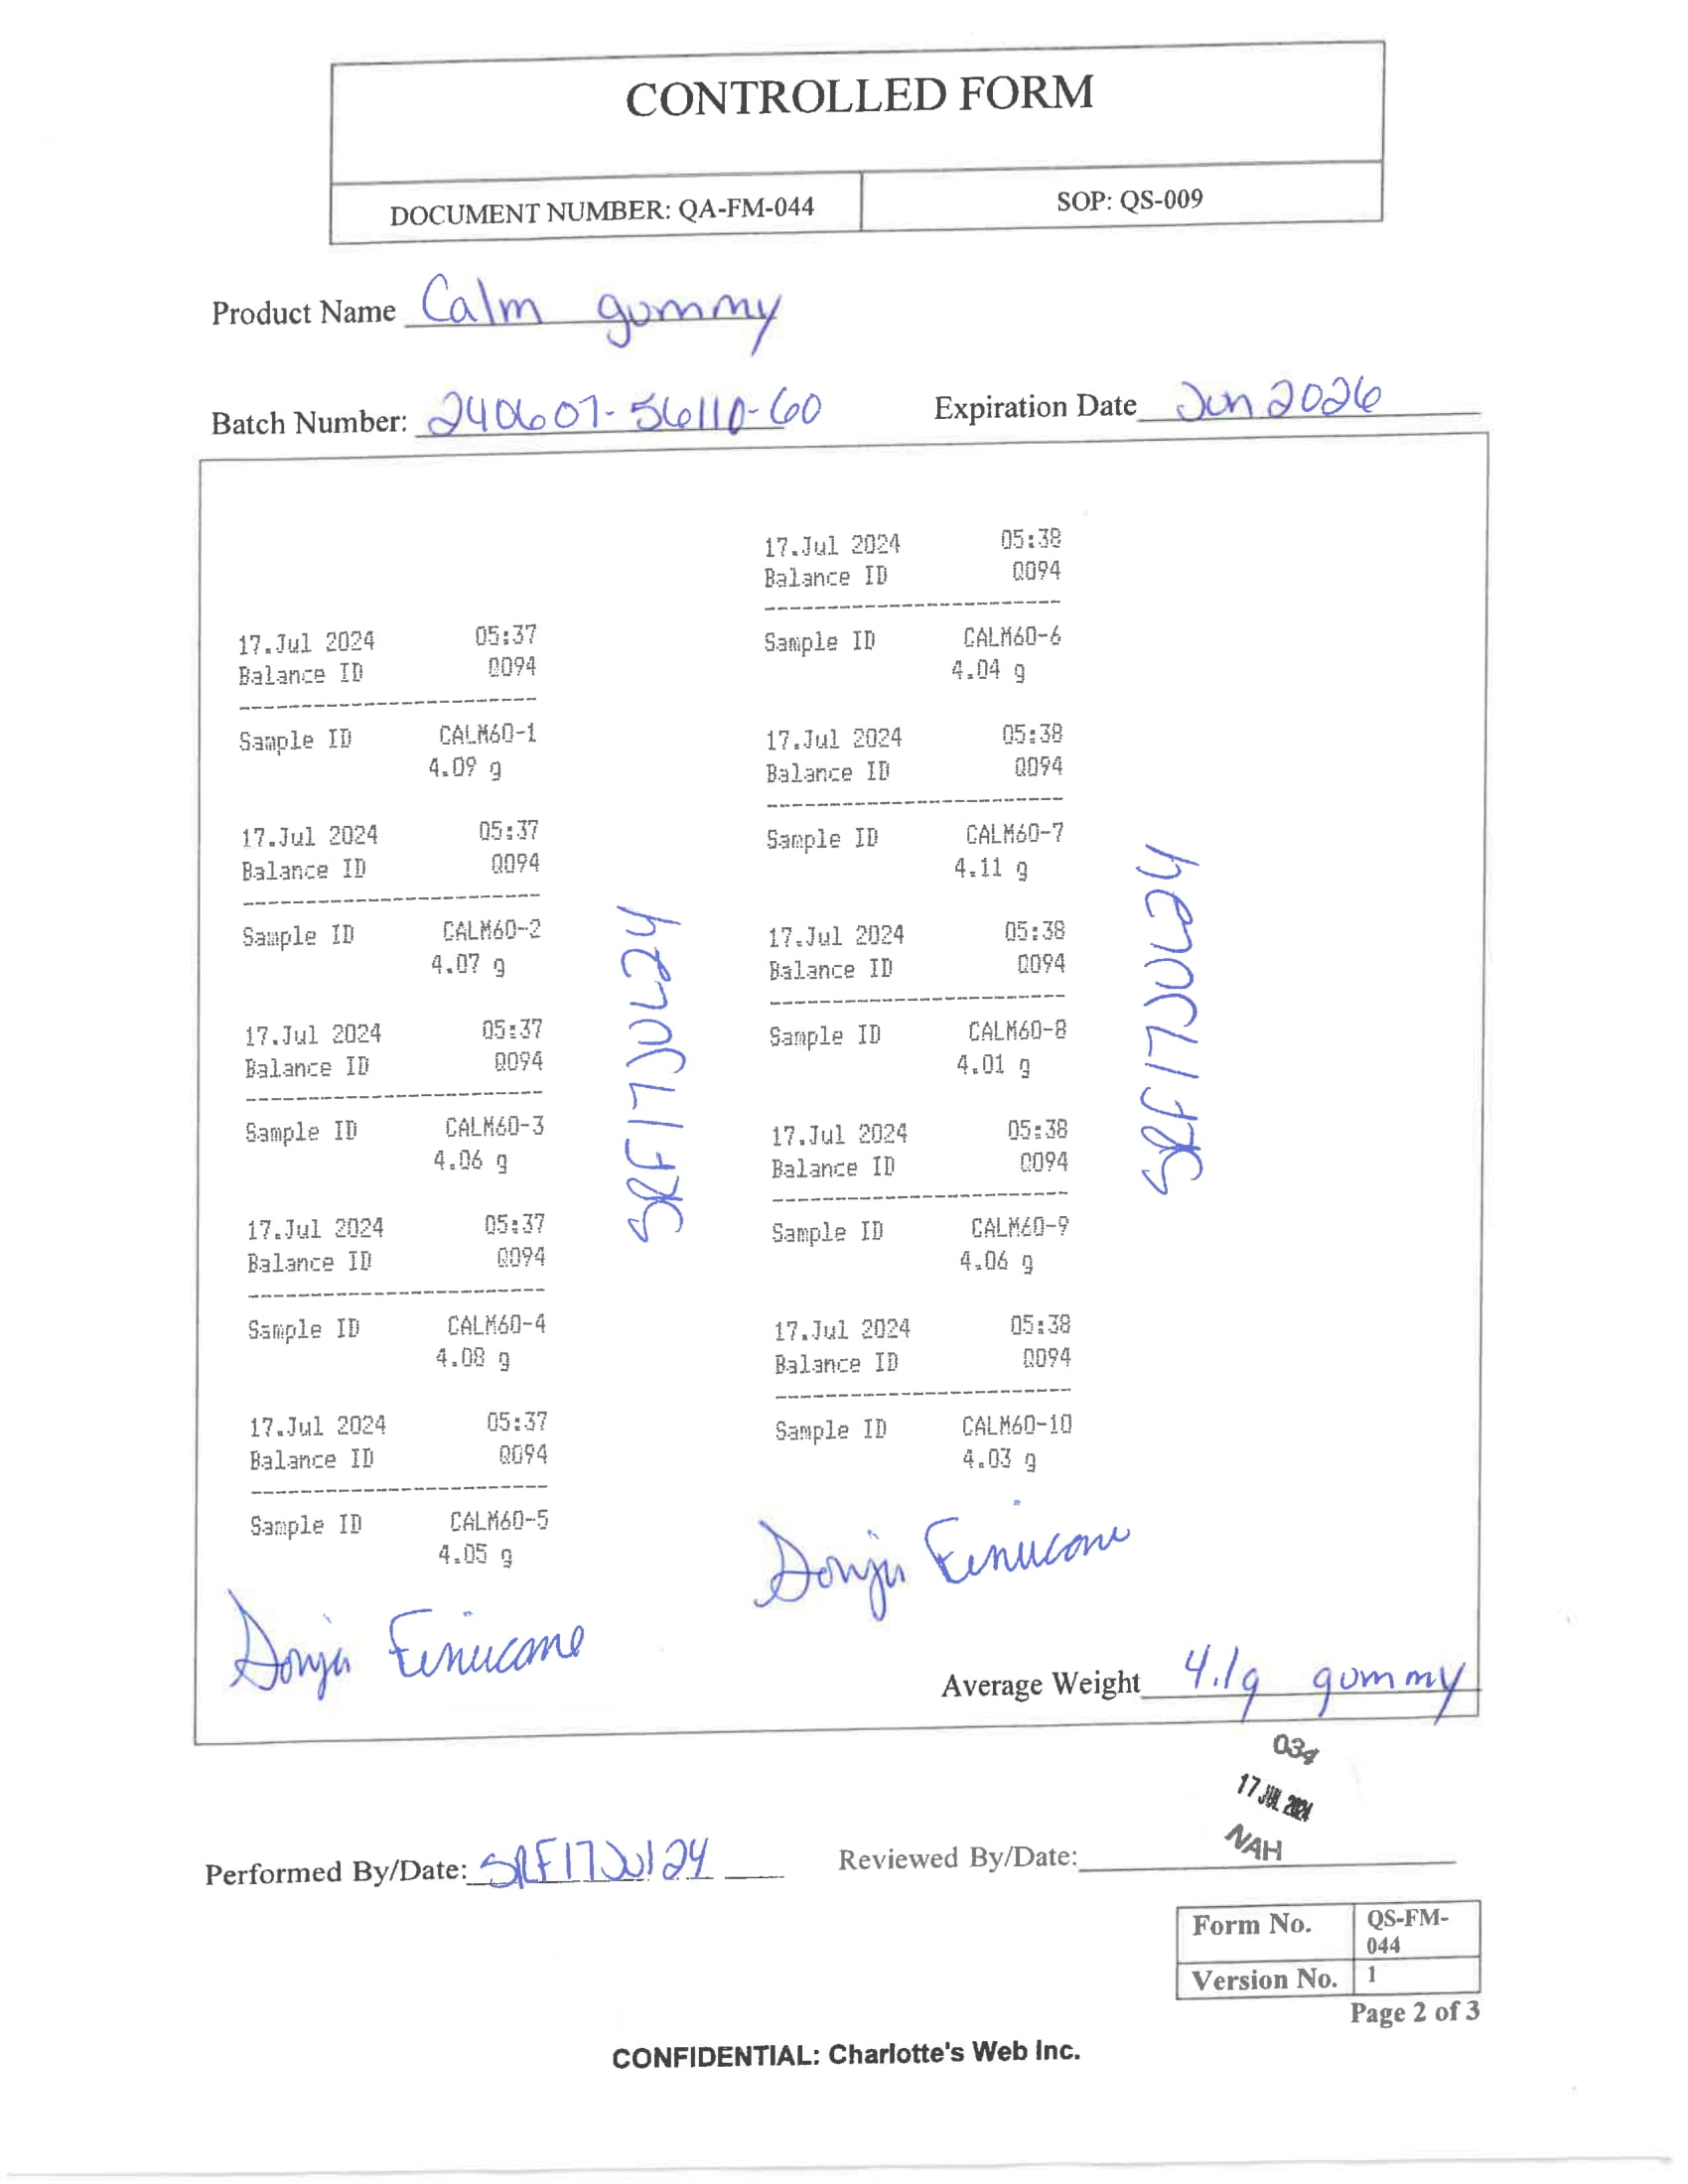 CONTROLLED FORM
DOCUMENT NUMBER: QA-FM-044
SOP: QS-009
Product Name Calm gummy
Batch Number: 240607-56110-60
Expiration Date Jun 2026
17.Jul 2024 05:37
Balance ID Q094
Sample ID CALM60-1
4.09 g
17.Jul 2024 05:37
Balance ID Q094
Sample ID CALM60-2
4.07 g
17.Jul 2024 05:37
Balance ID Q094
Sample ID CALM60-3
4.06 g
17.Jul 2024 05:37
Balance ID Q094
Sample ID CALM60-4
4.08 g
17.Jul 2024 05:37
Balance ID Q094
Sample ID CALM60-5
4.05 g
Sonja Finucane
SRF17JUL24
17.Jul 2024 05:38
Balance ID Q094
Sample ID CALM60-6
4.04 g
17.Jul 2024 05:38
Balance ID Q094
Sample ID CALM60-7
4.11 g
17.Jul 2024 05:38
Balance ID Q094
Sample ID CALM60-8
4.01 g
17.Jul 2024 05:38
Balance ID Q094
Sample ID CALM60-9
4.06 g
17.Jul 2024 05:38
Balance ID Q094
Sample ID CALM60-10
4.03 g
Sonja Finucane
SRF17JUL24
Average Weight 4.1g gummy
034
17 JUL 2024
NAH
Performed By/Date: SRF17Jul24
Reviewed By/Date:
Form No. QS-FM-
044
Version No. 1
Page 2 of 3
CONFIDENTIAL: Charlotte's Web Inc.